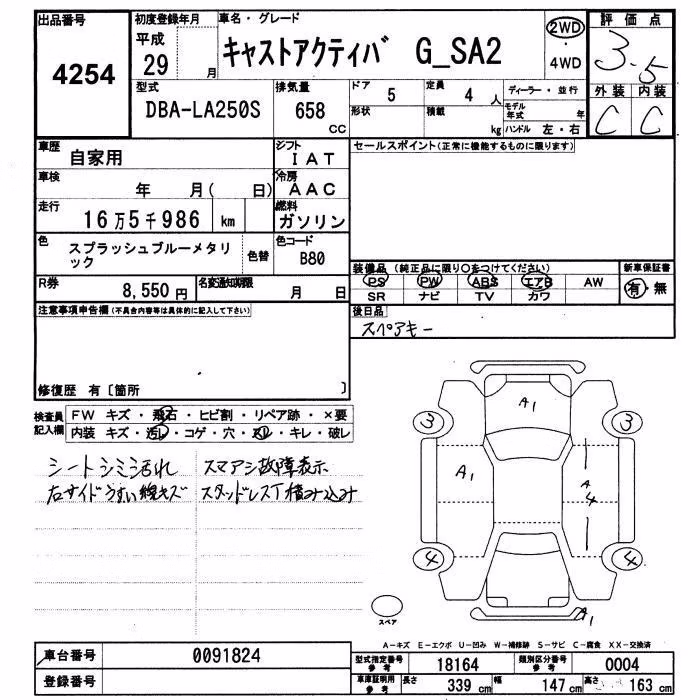 出品番号 4254
初度登録年月 平成 29 月
車名・グレード キャストアクティバ G_SA2
2WD
4WD
評価点 3.5
外装 C 内装 C
型式 DBA-LA250S
排気量 658 CC
ドア 5
定員 4 人
形状
積載 kg
ディーラー・並行
モデル年式 年
ハンドル 左・右
車歴 自家用
シフト IAT
セールスポイント(正常に機能するものに限ります)
車検 年 月( 日)
冷房 AAC
走行 16万5千986 km
燃料 ガソリン
色 スプラッシュブルーメタリック
色替
色コード B80
装備品 (純正品に限り○をつけてください)
PS PW ABS エアB AW
SR ナビ TV カワ
新車保証書 有・無
R券 8,550 円
名変通知期限 月 日
後日品
スペアキー
注意事項申告欄(不具合内容等は具体的に記入して下さい)
修復歴 有〔箇所 〕
検査員記入欄
FW キズ・飛石・ヒビ割・リペア跡・×要
内装 キズ・汚レ・コゲ・穴・スレ・キレ・破レ
シートシミ汚れ スマアシ故障表示
右サイドうすい線キズ スタッドレスT積み込み
A1
3 3
A1 A4
4 4
A1
スペア
A-キズ E-エクボ U-凹み W-補修跡 S-サビ C-腐食 XX-交換済
車台番号 0091824
登録番号
型式指定番号 参考 18164
類別区分番号 参考 0004
車庫証明用 参考 長さ 339 cm 幅 147 cm 高さ 163 cm